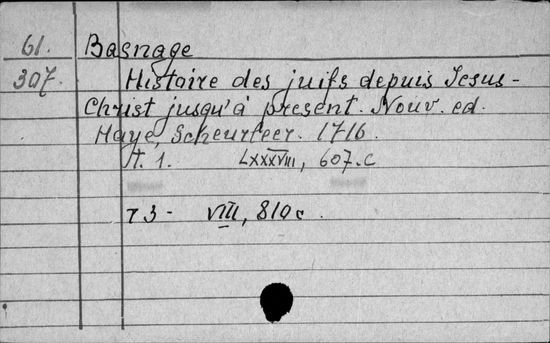 61. Basnage
307. Histoire des juifs depuis Jesus-
Christ jusqu'à present. Nouv. ed.
Haye, Scheurleer. 1716.
t. 1. LXXXVIII, 607.c
T 3 - VIII, 810 c.